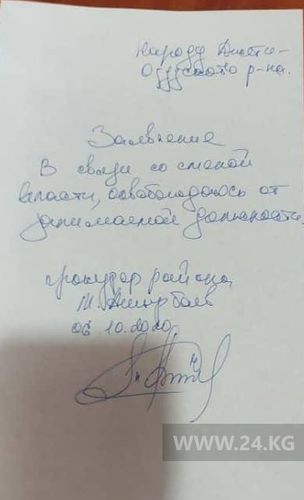 Народу Джети-
Огузского р-на.
Заявление
В связи со сменой
власти, освобождаюсь от
занимаемой должности.
прокурор района
М.
06.10.2020
WWW.24.KG